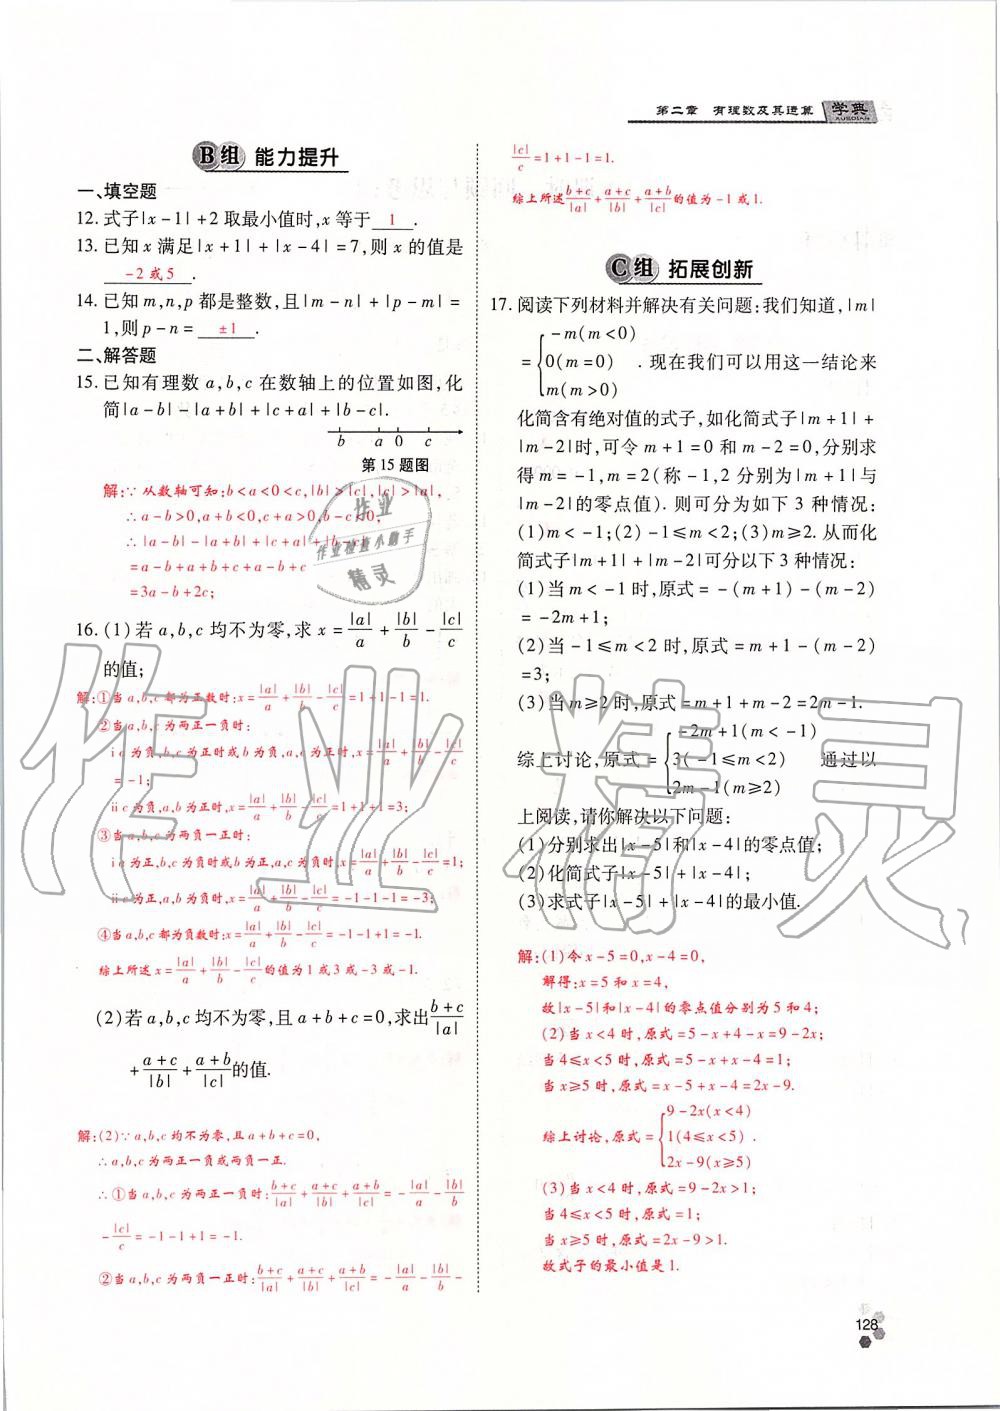 第二章 有理数及其运算 学典
XUEDIAN
B组 能力提升
一、填空题
12. 式子|x-1|+2取最小值时,x等于 1 .
13. 已知x满足|x+1|+|x-4|=7,则x的值是
-2或5 .
14. 已知m,n,p都是整数,且|m-n|+|p-m|=
1,则p-n= ±1 .
二、解答题
15. 已知有理数a,b,c在数轴上的位置如图,化
简|a-b|-|a+b|+|c+a|+|b-c|.
b a 0 c
第15题图
解:∵从数轴可知:b<a<0<c,|b|>|c|,|c|>|a|,
∴a-b>0,a+b<0,c+a>0,b-c<0,
∴|a-b|-|a+b|+|c+a|+|b-c|
=a-b+a+b+c+a-b+c
=3a-b+2c;
16. (1)若a,b,c均不为零,求x=|a|/a+|b|/b-|c|/c
的值;
解:①当a,b,c都为正数时:x=|a|/a+|b|/b-|c|/c=1+1-1=1.
②当a,b,c为两正一负时:
ⅰa为负,b,c为正时或b为负,a,c为正时,x=|a|/a+|b|/b-|c|/c
=-1;
ⅱc为负,a,b为正时,x=|a|/a+|b|/b-|c|/c=1+1+1=3;
③当a,b,c为两负一正时:
ⅰa为正,b,c为负时或b为正,a,c为负时,x=|a|/a+|b|/b-|c|/c=1;
ⅱc为正,a,b为负时,x=|a|/a+|b|/b-|c|/c=-1-1-1=-3;
④当a,b,c都为负数时:x=|a|/a+|b|/b-|c|/c=-1-1+1=-1.
综上所述x=|a|/a+|b|/b-|c|/c的值为1或3或-3或-1.
(2)若a,b,c均不为零,且a+b+c=0,求出(b+c)/|a|
+(a+c)/|b|+(a+b)/|c|的值.
解:(2)∵a,b,c均不为零,且a+b+c=0,
∴a,b,c为两正一负或两负一正.
∴①当a,b,c为两正一负时:(b+c)/|a|+(a+c)/|b|+(a+b)/|c|=-|a|/a-|b|/b
-|c|/c=-1-1+1=-1.
②当a,b,c为两负一正时:(b+c)/|a|+(a+c)/|b|+(a+b)/|c|=-|a|/a-|b|/b-
|c|/c=1+1-1=1.
综上所述(b+c)/|a|+(a+c)/|b|+(a+b)/|c|的值为-1或1.
C组 拓展创新
17. 阅读下列材料并解决有关问题:我们知道,|m|
-m(m<0)
={0(m=0) .现在我们可以用这一结论来
m(m>0)
化简含有绝对值的式子,如化简式子|m+1|+
|m-2|时,可令m+1=0和m-2=0,分别求
得m=-1,m=2(称-1,2分别为|m+1|与
|m-2|的零点值).则可分为如下3种情况:
(1)m<-1;(2)-1≤m<2;(3)m≥2.从而化
简式子|m+1|+|m-2|可分以下3种情况:
(1)当m<-1时,原式=-(m+1)-(m-2)
=-2m+1;
(2)当-1≤m<2时,原式=m+1-(m-2)
=3;
(3)当m≥2时,原式=m+1+m-2=2m-1.
-2m+1(m<-1)
综上讨论,原式={3(-1≤m<2) 通过以
2m-1(m≥2)
上阅读,请你解决以下问题:
(1)分别求出|x-5|和|x-4|的零点值;
(2)化简式子|x-5|+|x-4|;
(3)求式子|x-5|+|x-4|的最小值.
解:(1)令x-5=0,x-4=0,
解得:x=5和x=4,
故|x-5|和|x-4|的零点值分别为5和4;
(2)当x<4时,原式=5-x+4-x=9-2x;
当4≤x<5时,原式=5-x+x-4=1;
当x≥5时,原式=x-5+x-4=2x-9.
9-2x(x<4)
综上讨论,原式={1(4≤x<5) .
2x-9(x≥5)
(3)当x<4时,原式=9-2x>1;
当4≤x<5时,原式=1;
当x≥5时,原式=2x-9>1.
故式子的最小值是1.
128
作业
作业检查小助手
精灵
作业精灵